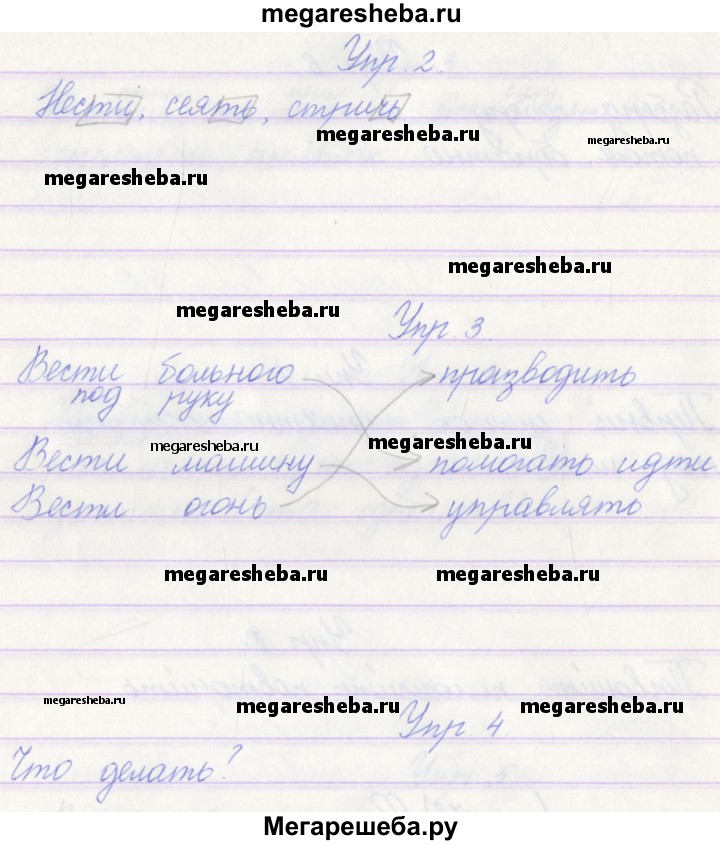 megaresheba.ru
Упр. 2.
Нести, сеять, стричь
megaresheba.ru
megaresheba.ru
megaresheba.ru
megaresheba.ru
megaresheba.ru
Упр. 3
Вести больного производить
под руку
megaresheba.ru
megaresheba.ru
Вести машину помогать идти
Вести огонь управлять
megaresheba.ru megaresheba.ru
megaresheba.ru megaresheba.ru megaresheba.ru
Упр. 4.
Что делать?
Мегарешеба.ру